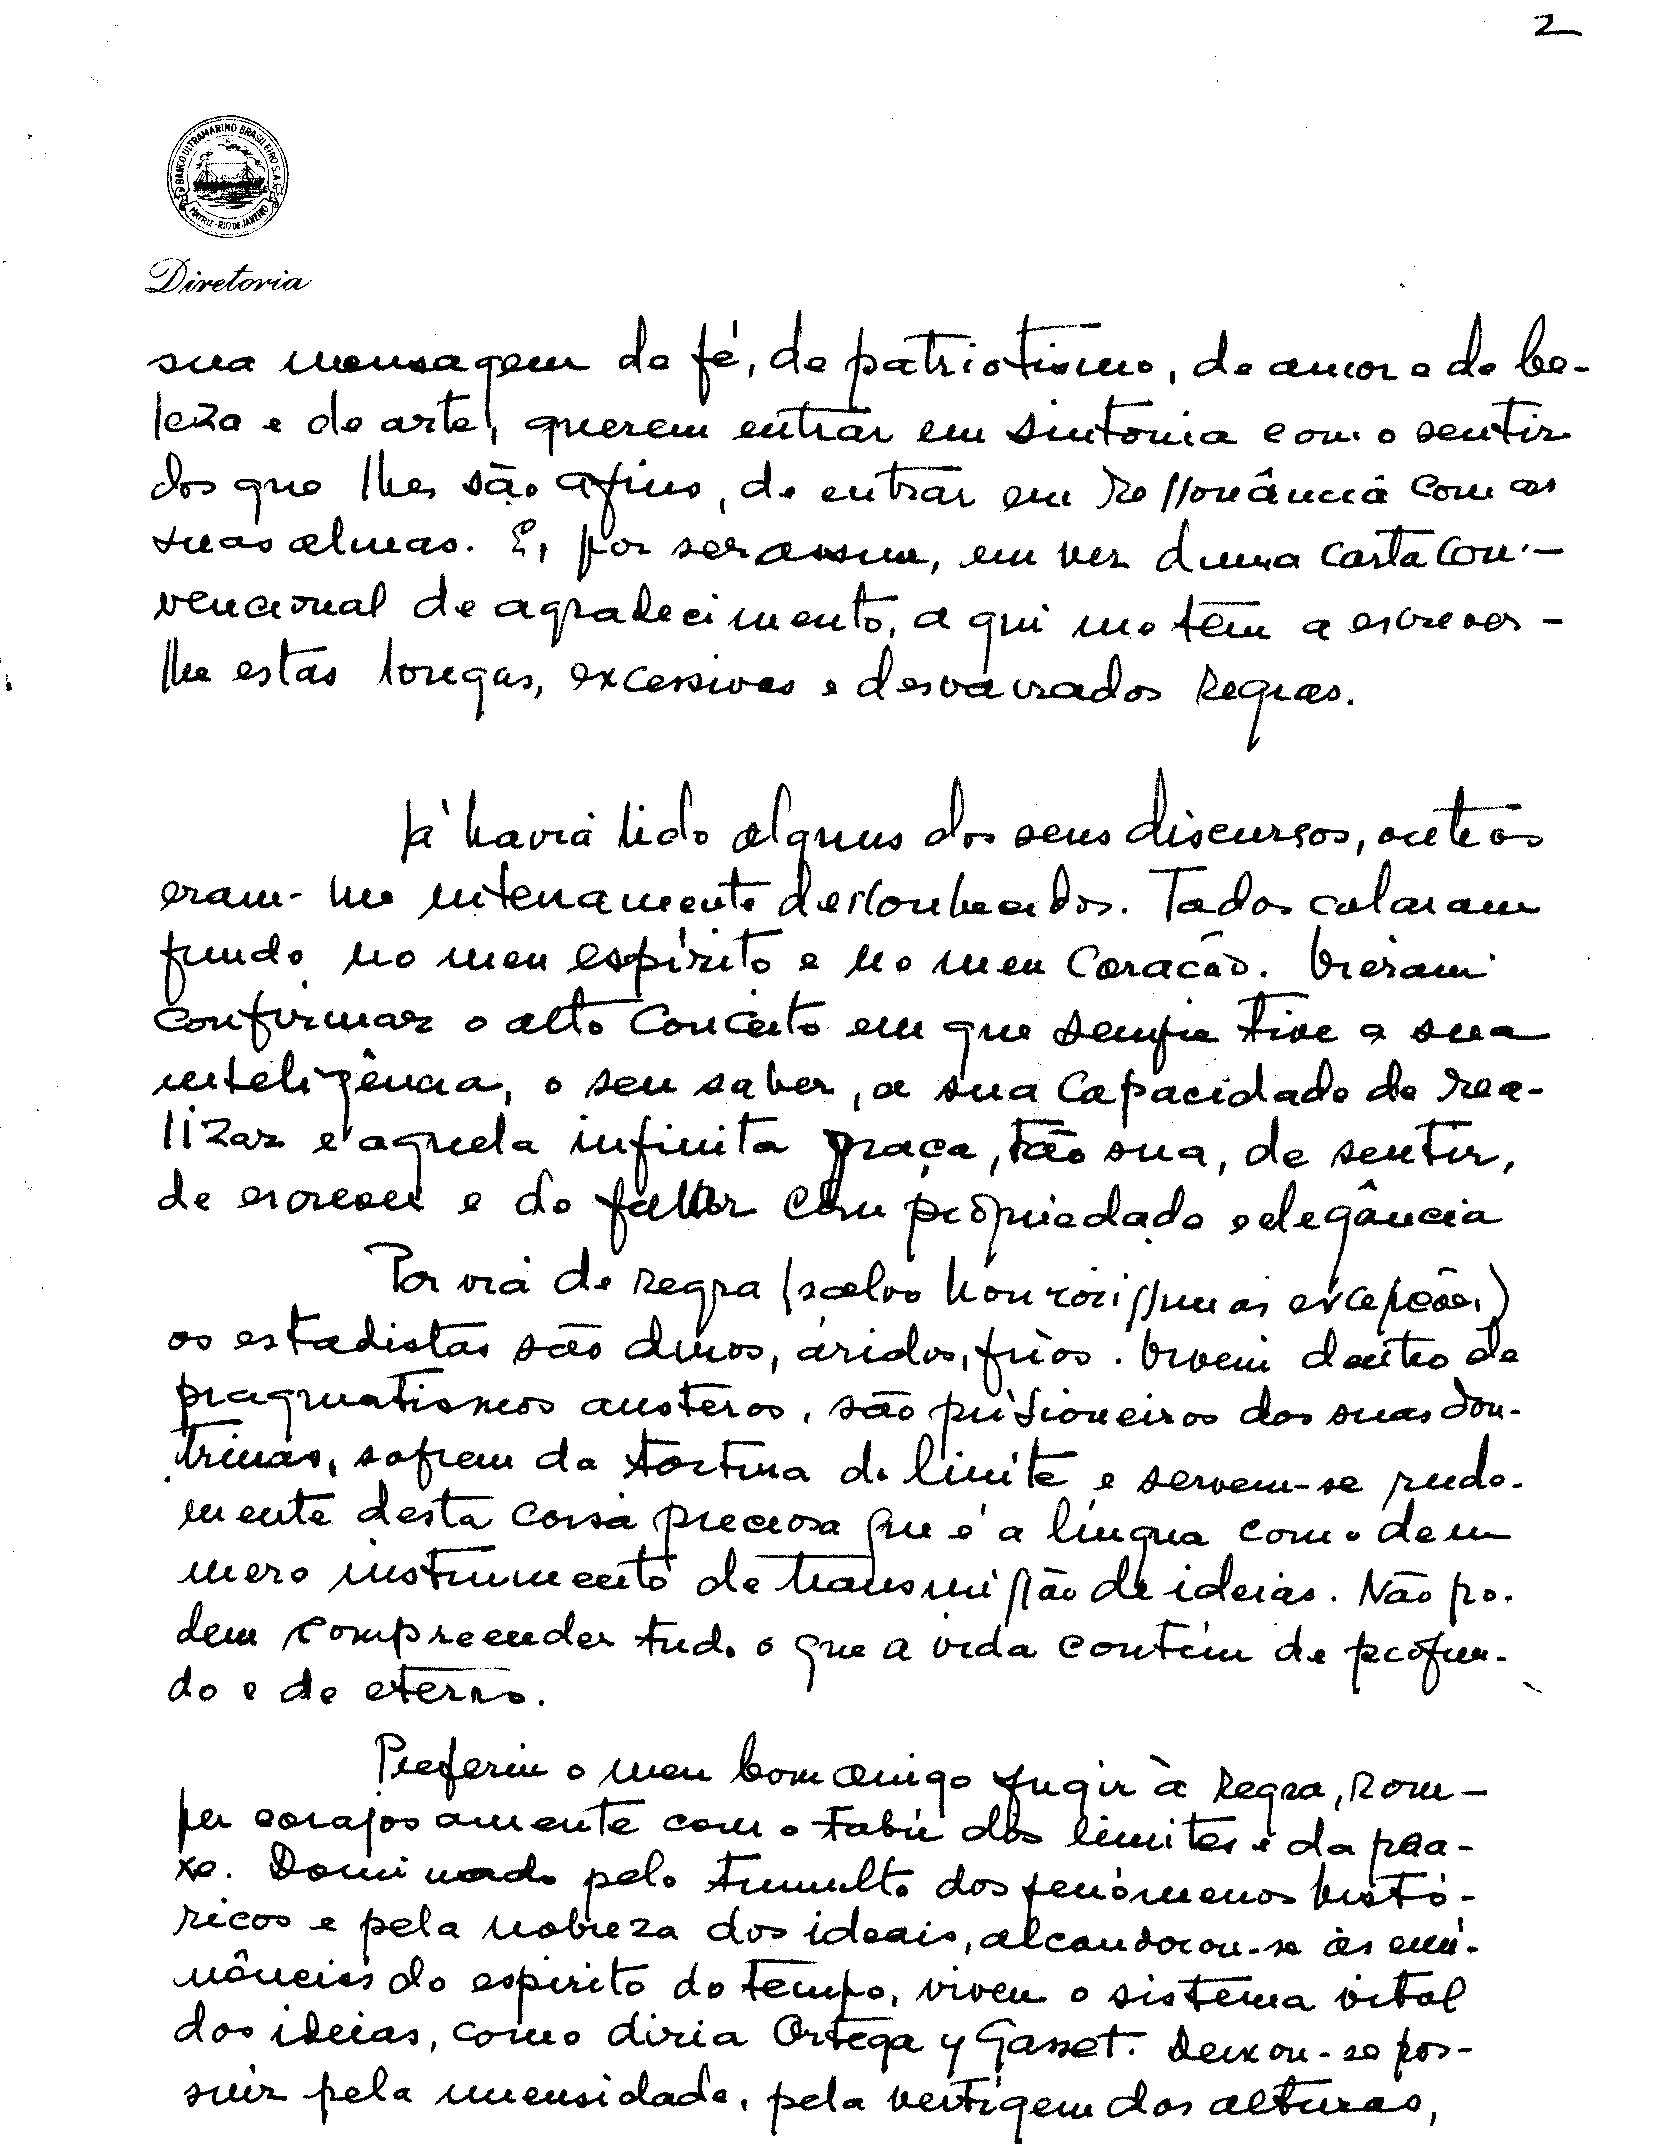 2
BANCO ULTRAMARINO BRASILEIRO S.A.
MATRIZ - RIO DE JANEIRO
Diretoria
sua mensagem de fé, de patriotismo, de amor e de be-
leza e de arte, querem entrar em sintonia com o sentir
dos que lhes são afins, de entrar em ressonância com as
suas almas. E, por ser assim, em vez duma carta con-
vencional de agradecimento, aqui me têm a escrever-
lhe estas longas, excessivas e desvairadas regras.
Já havia lido alguns dos seus discursos, outros
eram-me inteiramente desconhecidos. Todos calaram
fundo no meu espírito e no meu coração. Vieram
confirmar o alto conceito em que sempre tive a sua
inteligência, o seu saber, a sua capacidade de rea-
lizar e aquela infinita graça, tão sua, de sentir,
de escrever e de falar com propriedade e elegância
Por via de regra (salvo honrosissimas excepções)
os estadistas são duros, áridos, frios. Vivem dentro de
pragmatismos austeros, são prisioneiros das suas dou-
trinas, sofrem da tortura do limite e servem-se rude-
mente desta coisa preciosa que é a língua como de um
mero instrumento de transmissão de ideias. Não po-
dem compreender tudo o que a vida contém de profun-
do e de eterno.
Preferiu o meu bom amigo fugir à regra, rom-
per corajosamente com o tabú dos limites e da pra-
xe. Dominado pelo tumulto dos fenómenos histó-
ricos e pela nobreza dos ideais, alcandorou-se às emi-
nências do espirito do tempo, viveu o sistema vital
das ideias, como diria Ortega y Gasset. Deixou-se pos-
suir pela imensidade, pela vertigem das alturas,